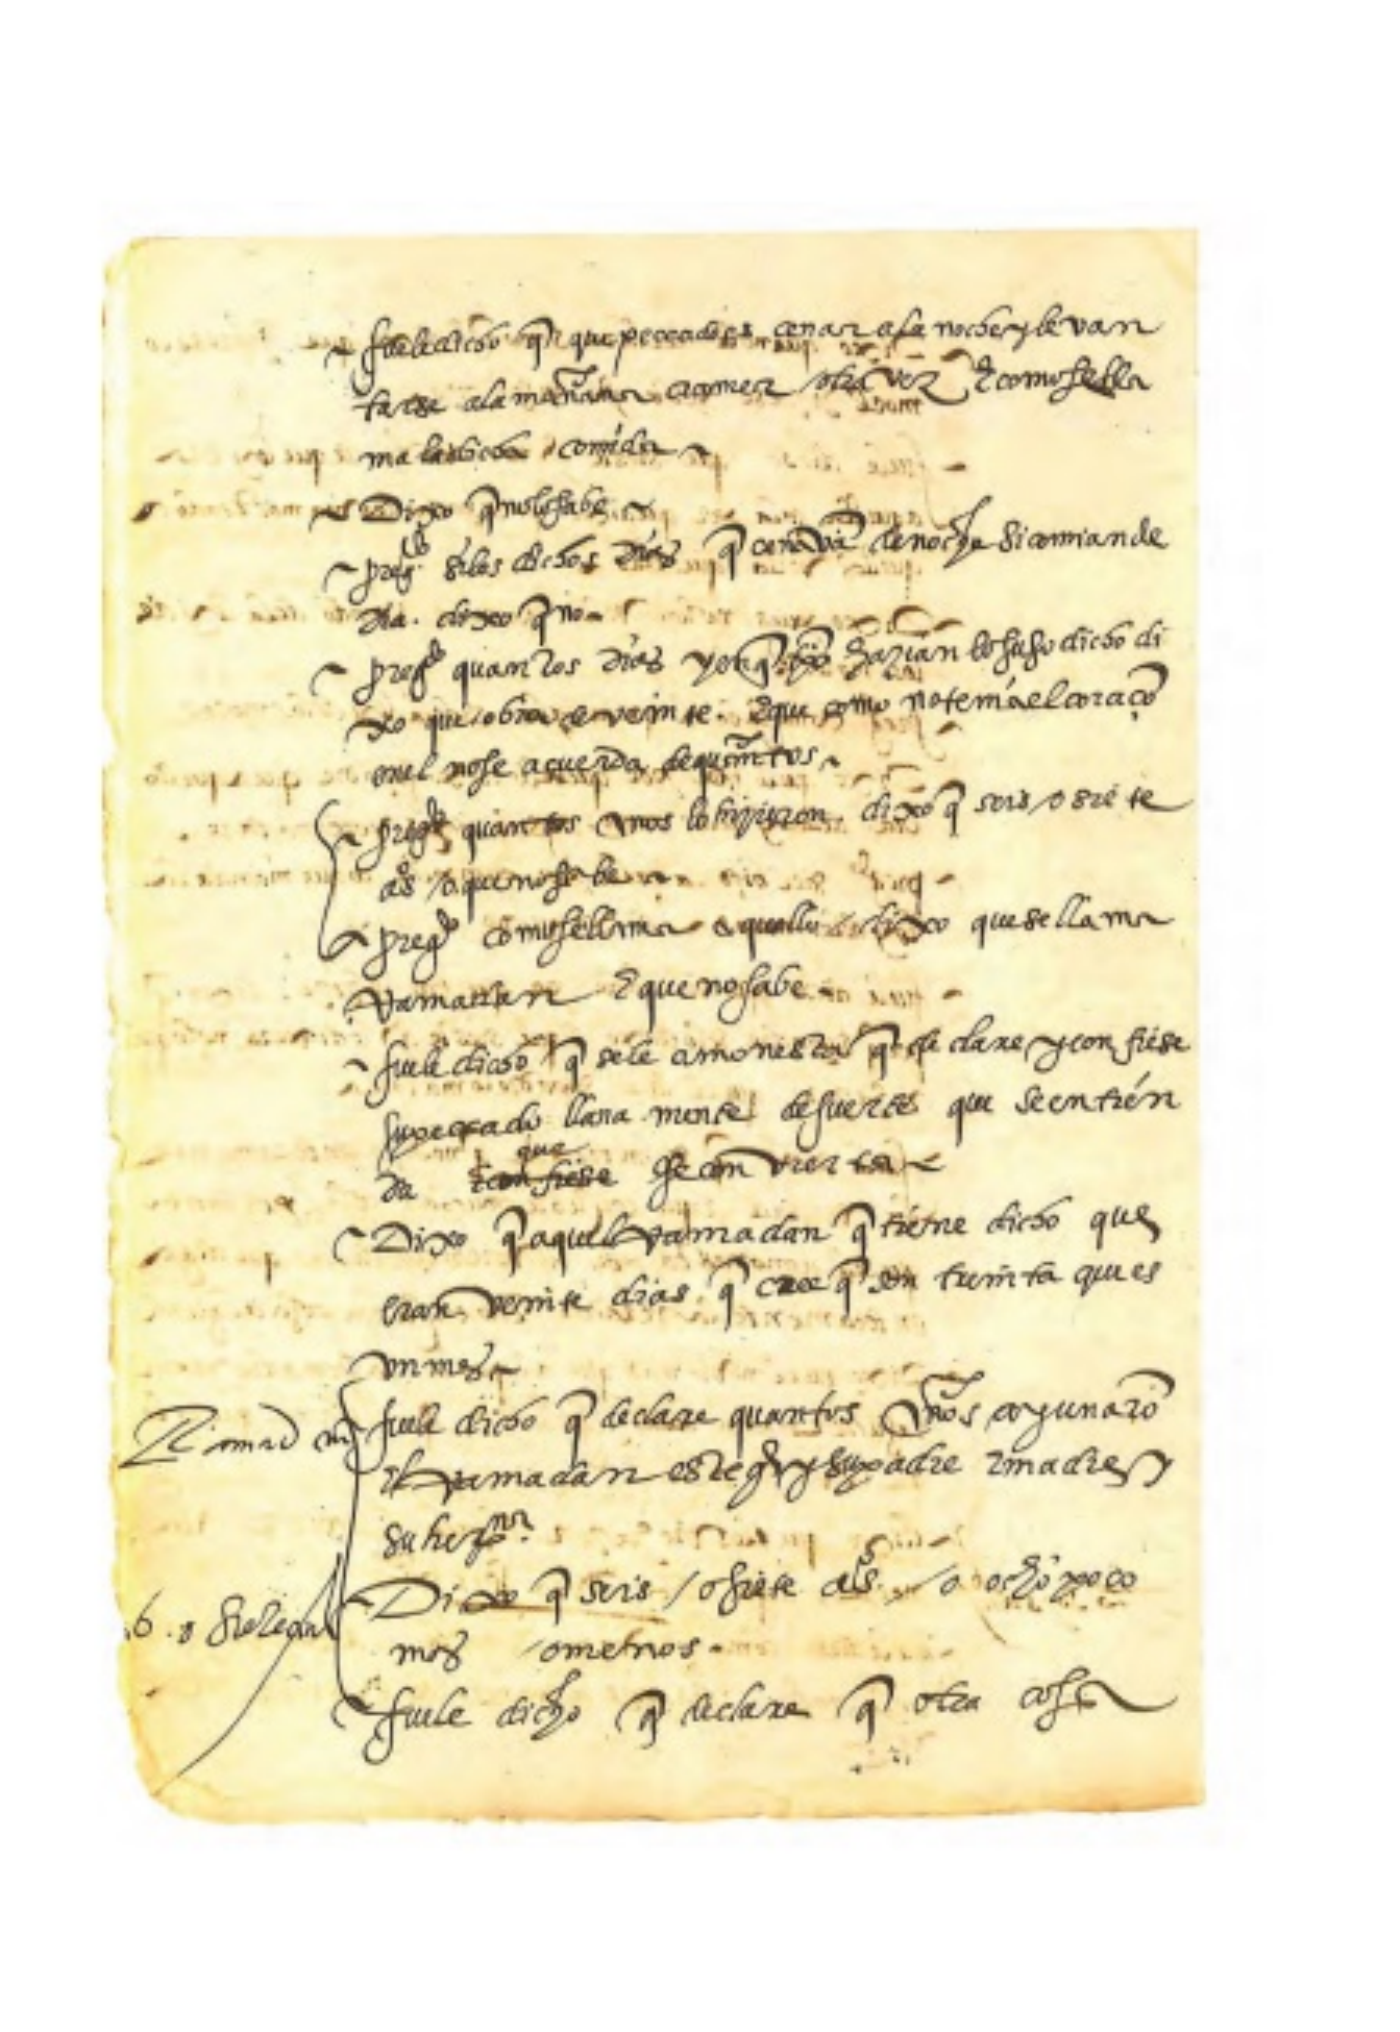 fuele dicho q̃ que peccado es cenar a la noche y levan
tarse a la mañana a comer otra vez E como se lla
ma la dicha comida
Dixo q̃ no lo sabe
preg.do si los dichos dias q̃ cenavã de noche si comian de
dia. dixo q̃ no
preg.do quantos dias y en q̃ tpõ hazian lo suso dicho di
xo que obra de veinte. E que como no tenia el coraçõ
en el no se acuerda de quantos
preg.do quantos años lo hizieron. dixo q̃ seis / o siete
años / o que no sabe
preg.do como se llama aquello dixo que se llama
Ramadan E que no sabe
fuele dicho q̃ se le amonesta q̃ declare y confiese
su peccado llana mente de suerte que se entien
que
da E confiese se convierta
Dixo q̃ aquel Ramadan q̃ tiene dicho que
eran veinte dias q̃ cree q̃ son treinta que es
un mes
fuele dicho q̃ declare quantos años ayunarõ
el Ramadan este y su padre E madre y
su her.na
Dixo q̃ seis / o siete aõs / o ocho poco
mas / o menos
6. o siete
fuele dicho q̃ declare q̃ otra cosa